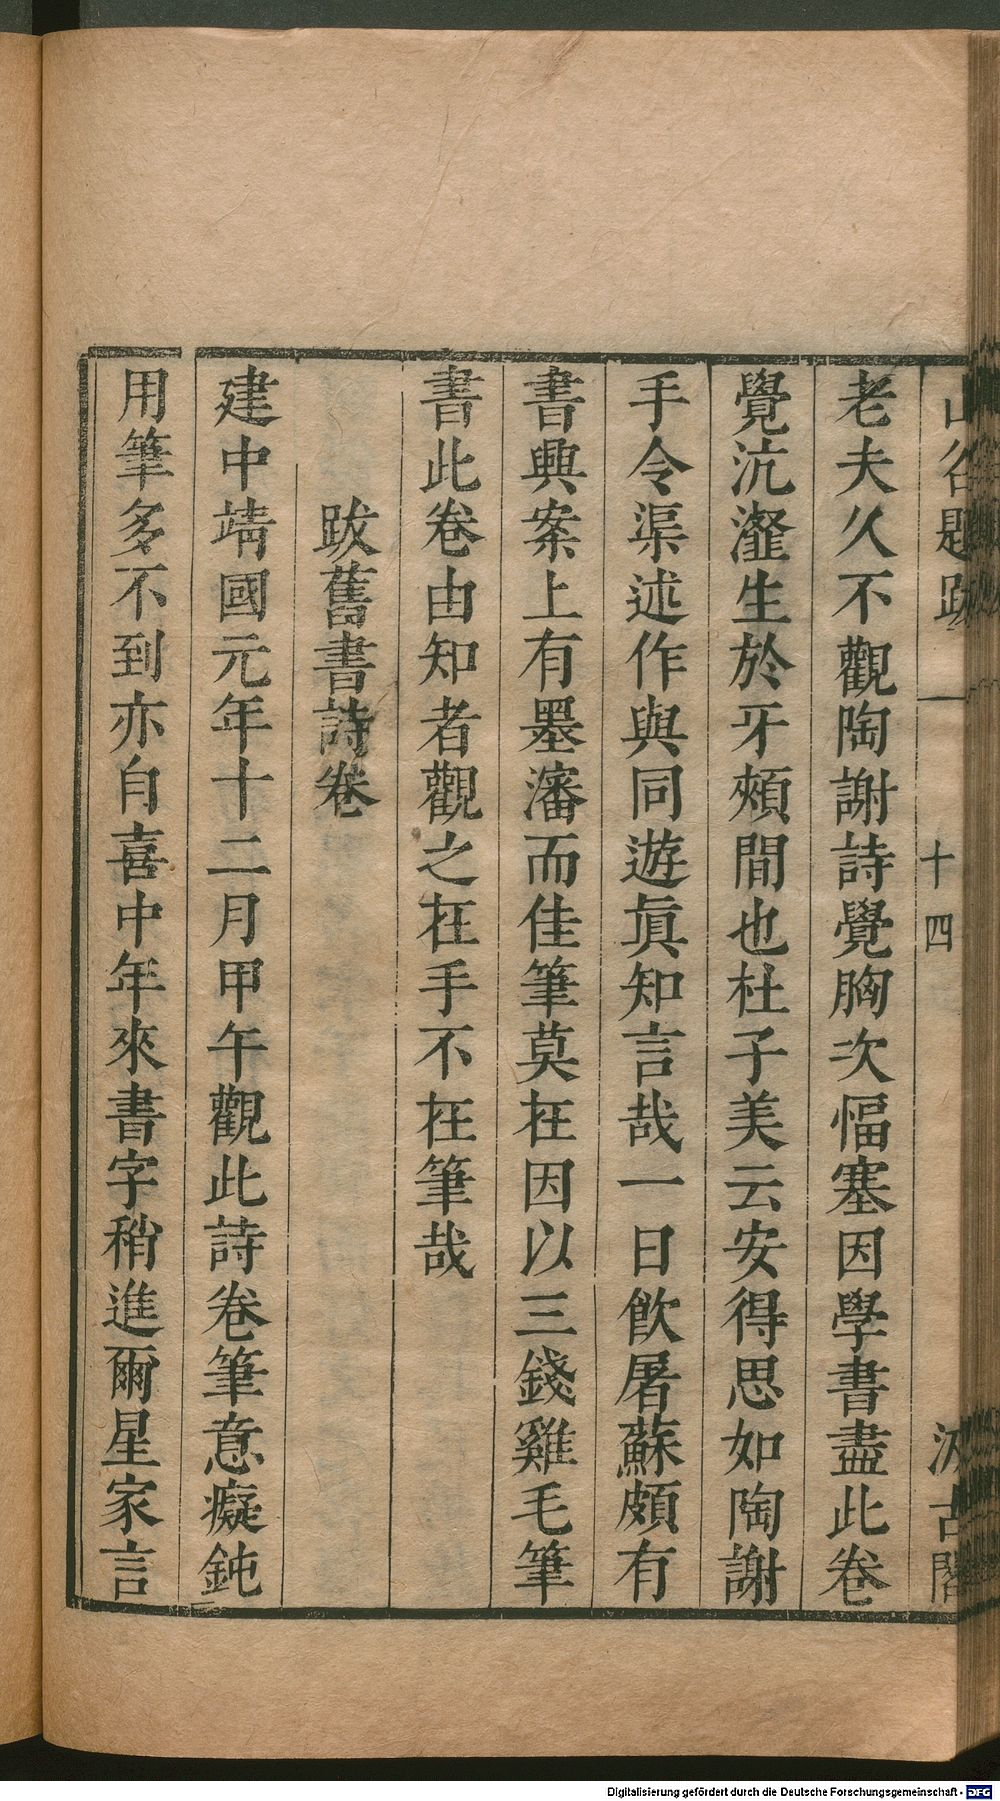 山谷題跋 一 十四 汲古閣
老夫久不觀陶謝詩覺胸次愊塞因學書盡此卷
覺沆瀣生於牙頰間也杜子美云安得思如陶謝
手令渠述作與同遊眞知言哉一日飲屠蘇頗有
書興案上有墨瀋而佳筆莫在因以三錢雞毛筆
書此卷由知者觀之在手不在筆哉
跋舊書詩卷
建中靖國元年十二月甲午觀此詩卷筆意癡鈍
用筆多不到亦自喜中年來書字稍進爾星家言
Digitalisierung gefördert durch die Deutsche Forschungsgemeinschaft - DFG